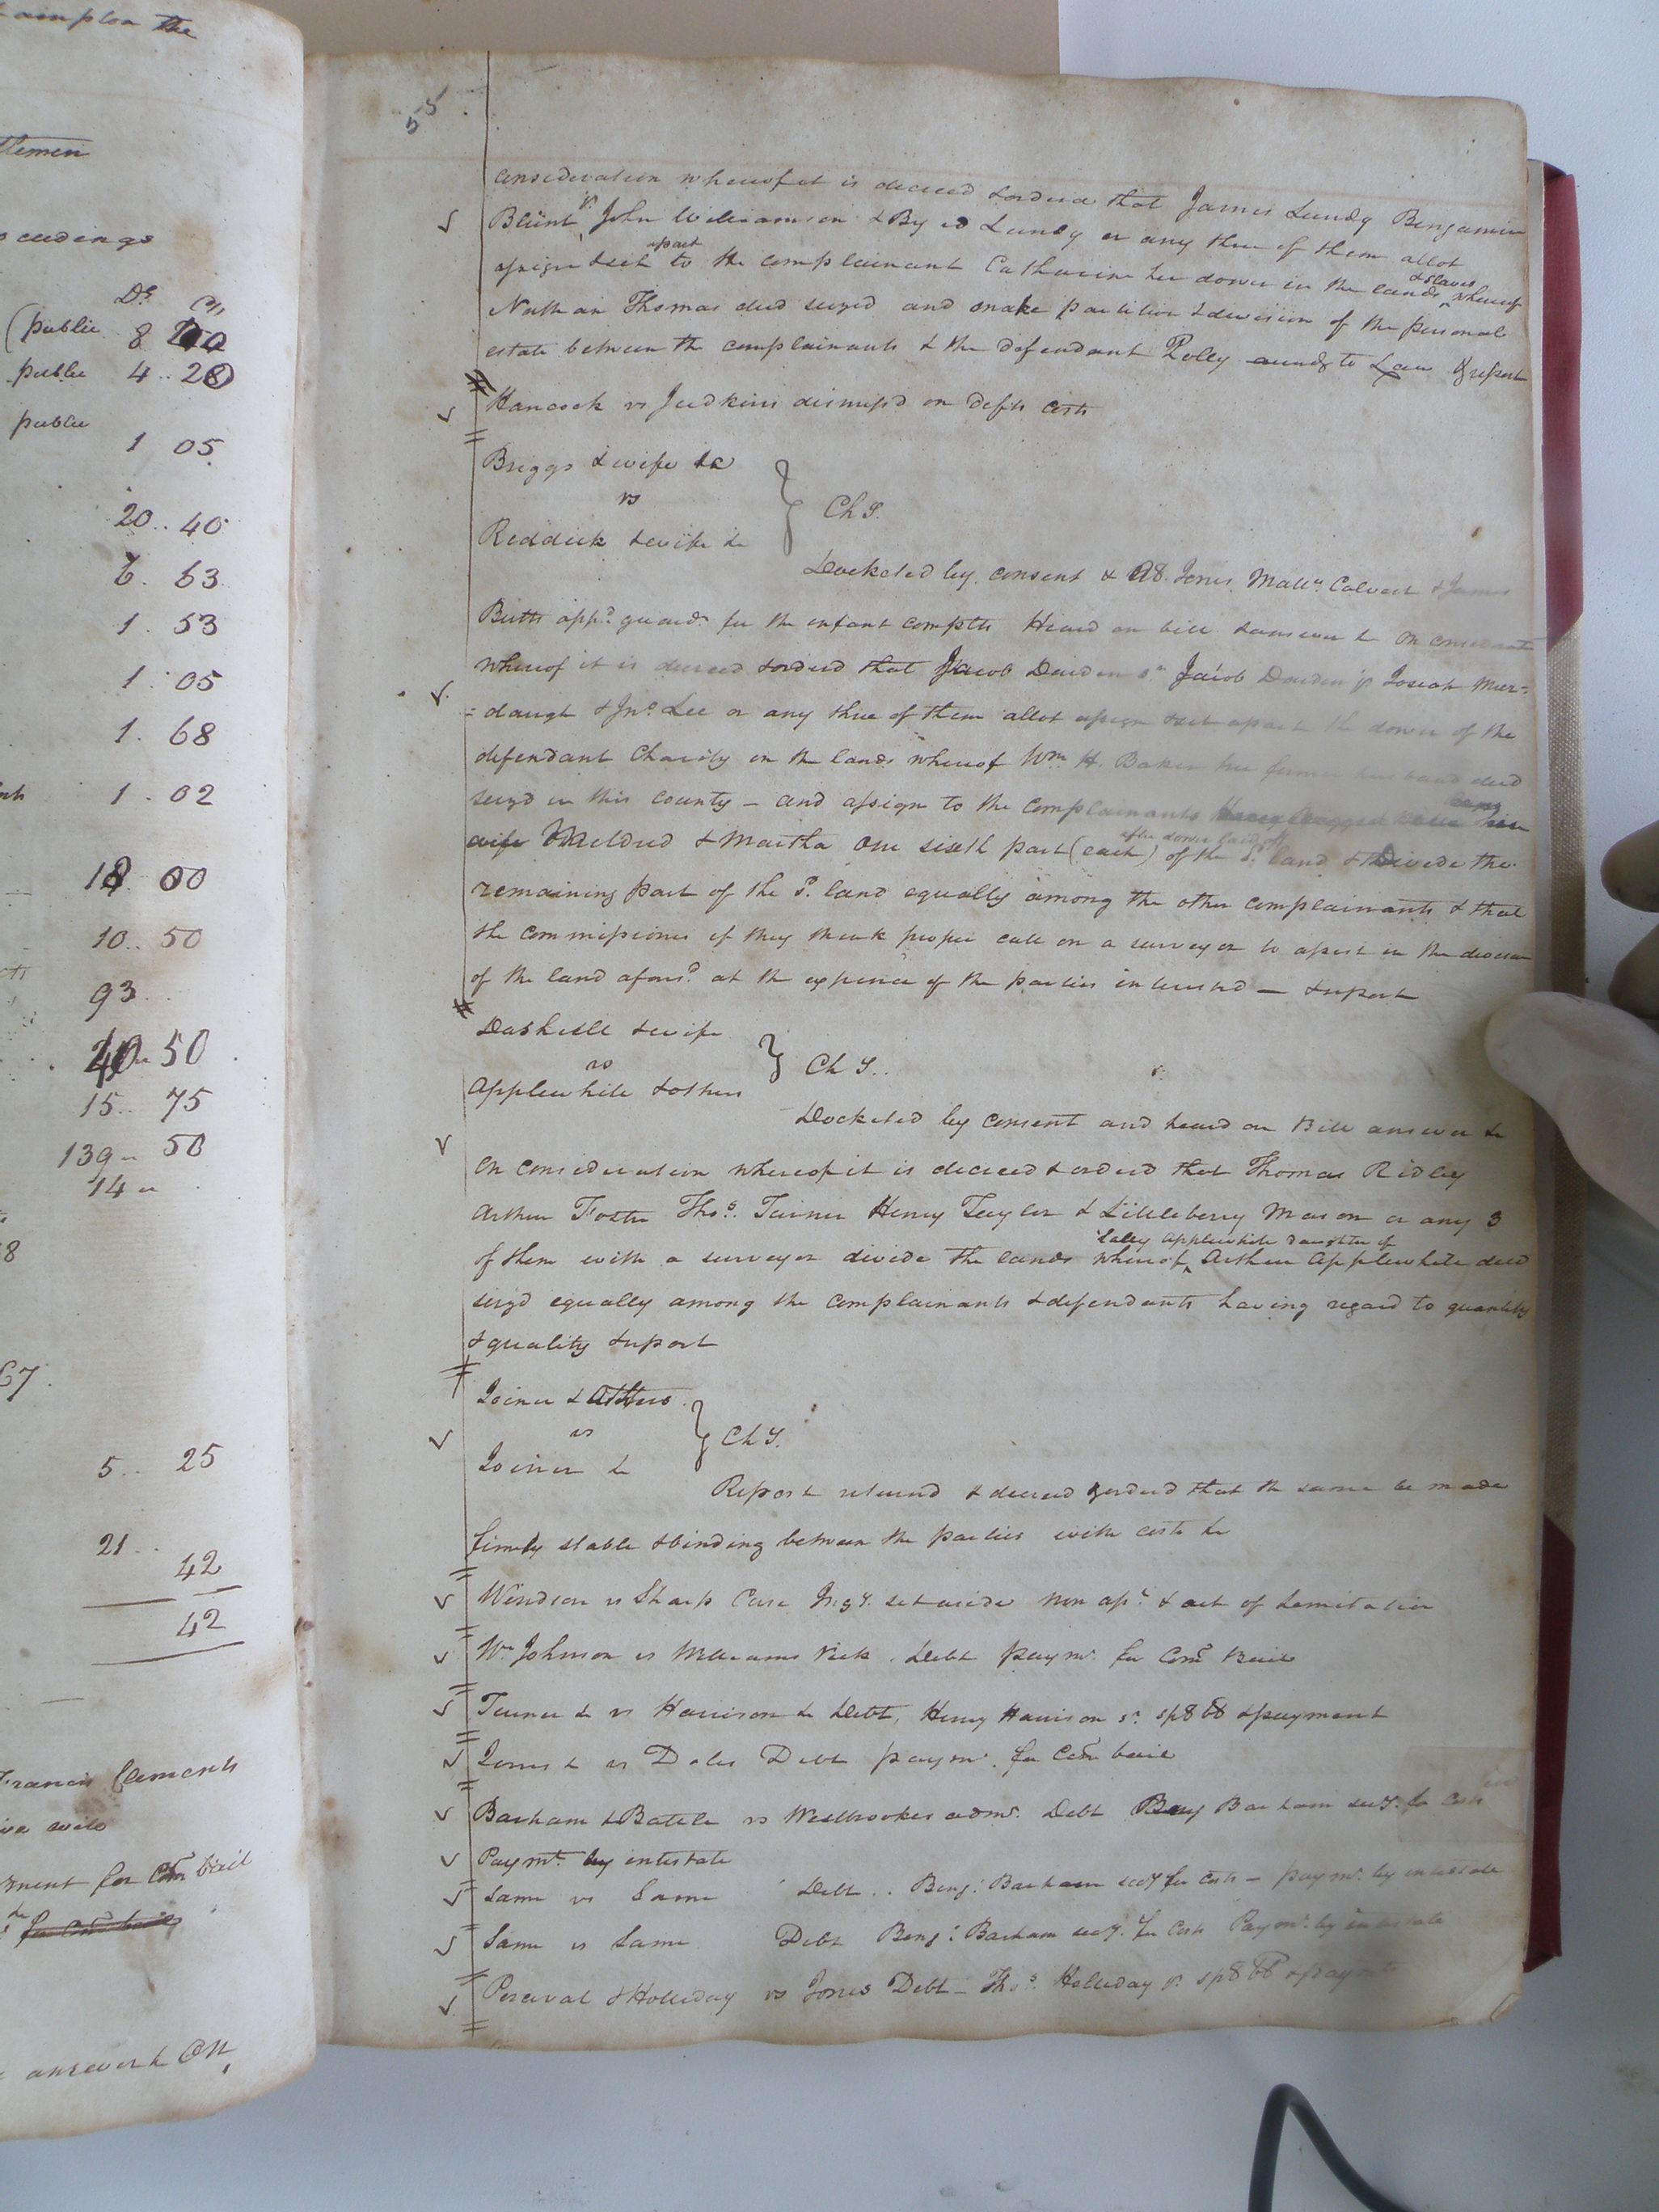 ampton the
tlemen
ceedings
Ds Cts
(public 8
public 4..20
public
1 05
20..40
6. 63
1. 53
1. 05
1. 68
1. 02
18 00
10.. 50
93
50
15.. 75
139 50
14
8
67.
5.. 25
21..
42
42
Francis Clements
will
ment for Com bail
answer &c On
55
consideration whereof it is decreed & ordered that James Lundy Benjamin
Blunt jr. John Williamson & Byrd Lundy or any three of them allot
assign & set apart to the complainant Catharine her dower in the lands & slaves whereof
Nathan Thomas died seized and make partition & division of the personal
estate between the complainants & the defendant Polly to Law & report
Hancock vs Judkins dismissd on Defts costs
Briggs & wife &c
vs
Reddick & wife &c
Ch S.
Docketed by consent & AS. Jones Mattw Calvert & James
Butts appd. guards for the infant complts Heard on bill & answer &c On considerat
whereof it is decreed & ordered that Jacob Darden sr Jacob Darden jr Josiah Mur=
=daugh & Jno. Lee or any three of them allot assign & set apart the dower of the
defendant Charity in the lands whereof Wm H. Baker her former husband died
seizd in this county - and assign to the complainants
wife Mildred & Martha one sixth part (each) after dower laid off of the sd. land & divide the
remaining part of the sd. land equally among the other complainants & that
the commissioners if they think proper call on a surveyor to assist in the division
of the land aforesd. at the expence of the parties interested - & report
Dashiell & wife
vs
Applewhite & others
Ch S..
Docketed by consent and heard on Bill answer &c
On consideration whereof it is decreed & ordered that Thomas Ridley
Arthur Foster Thos. Turner Henry Taylor & Littleberry Mason or any 3
of them with a surveyor divide the lands whereof Sally Applewhite daughter of Arthur Applewhite died
seizd equally among the complainants & defendants having regard to quantity
& quality & report
Joiner & others
vs
Joiner &c
Ch S.
Report returned & decreed & ordered that the same be made
firmly stable & binding between the parties with costs &c
Windsor vs Sharp Case set aside non asst. & act of Limitation
Wm Johnson vs Williams Debt paymt. for Com Bail
Turner &c vs Harrison &c Debt, Henry Harrison sr. sp & payment
Jones &c vs Doles Debt paymt. for Com bail
Barham & Battle vs Westbrookes admr. Debt Benj Barham secy. for costs
Paymt. by intestate
Same vs Same Debt.. Benj: Barham secy for costs - paymt. by intestate
Same vs Same Debt Benj: Barham secy. for costs Paymt. by intestate
Perceval & Holliday vs Jones Debt - Thos. Holliday jr. sp & payment